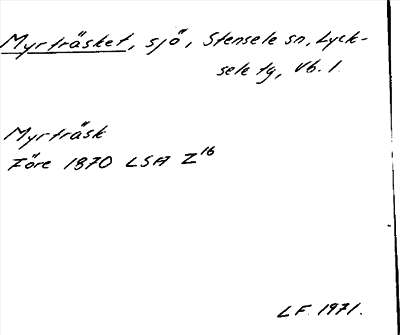 Myrträsket, sjö, Stensele sn, Lyck-
sele tg, Vb. l.
Myrträsk
Före 1870 LSA Z16
LF 1971.